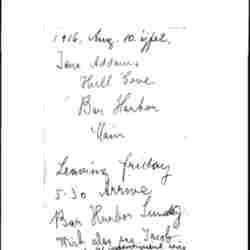 1916. Aug. 10. éjfél.
Jane Addams
Hull Cove
Bar Harbor
Main
Leaving friday
5.30 Arrive
Bar Harbor Sunday
Miss
Jacob